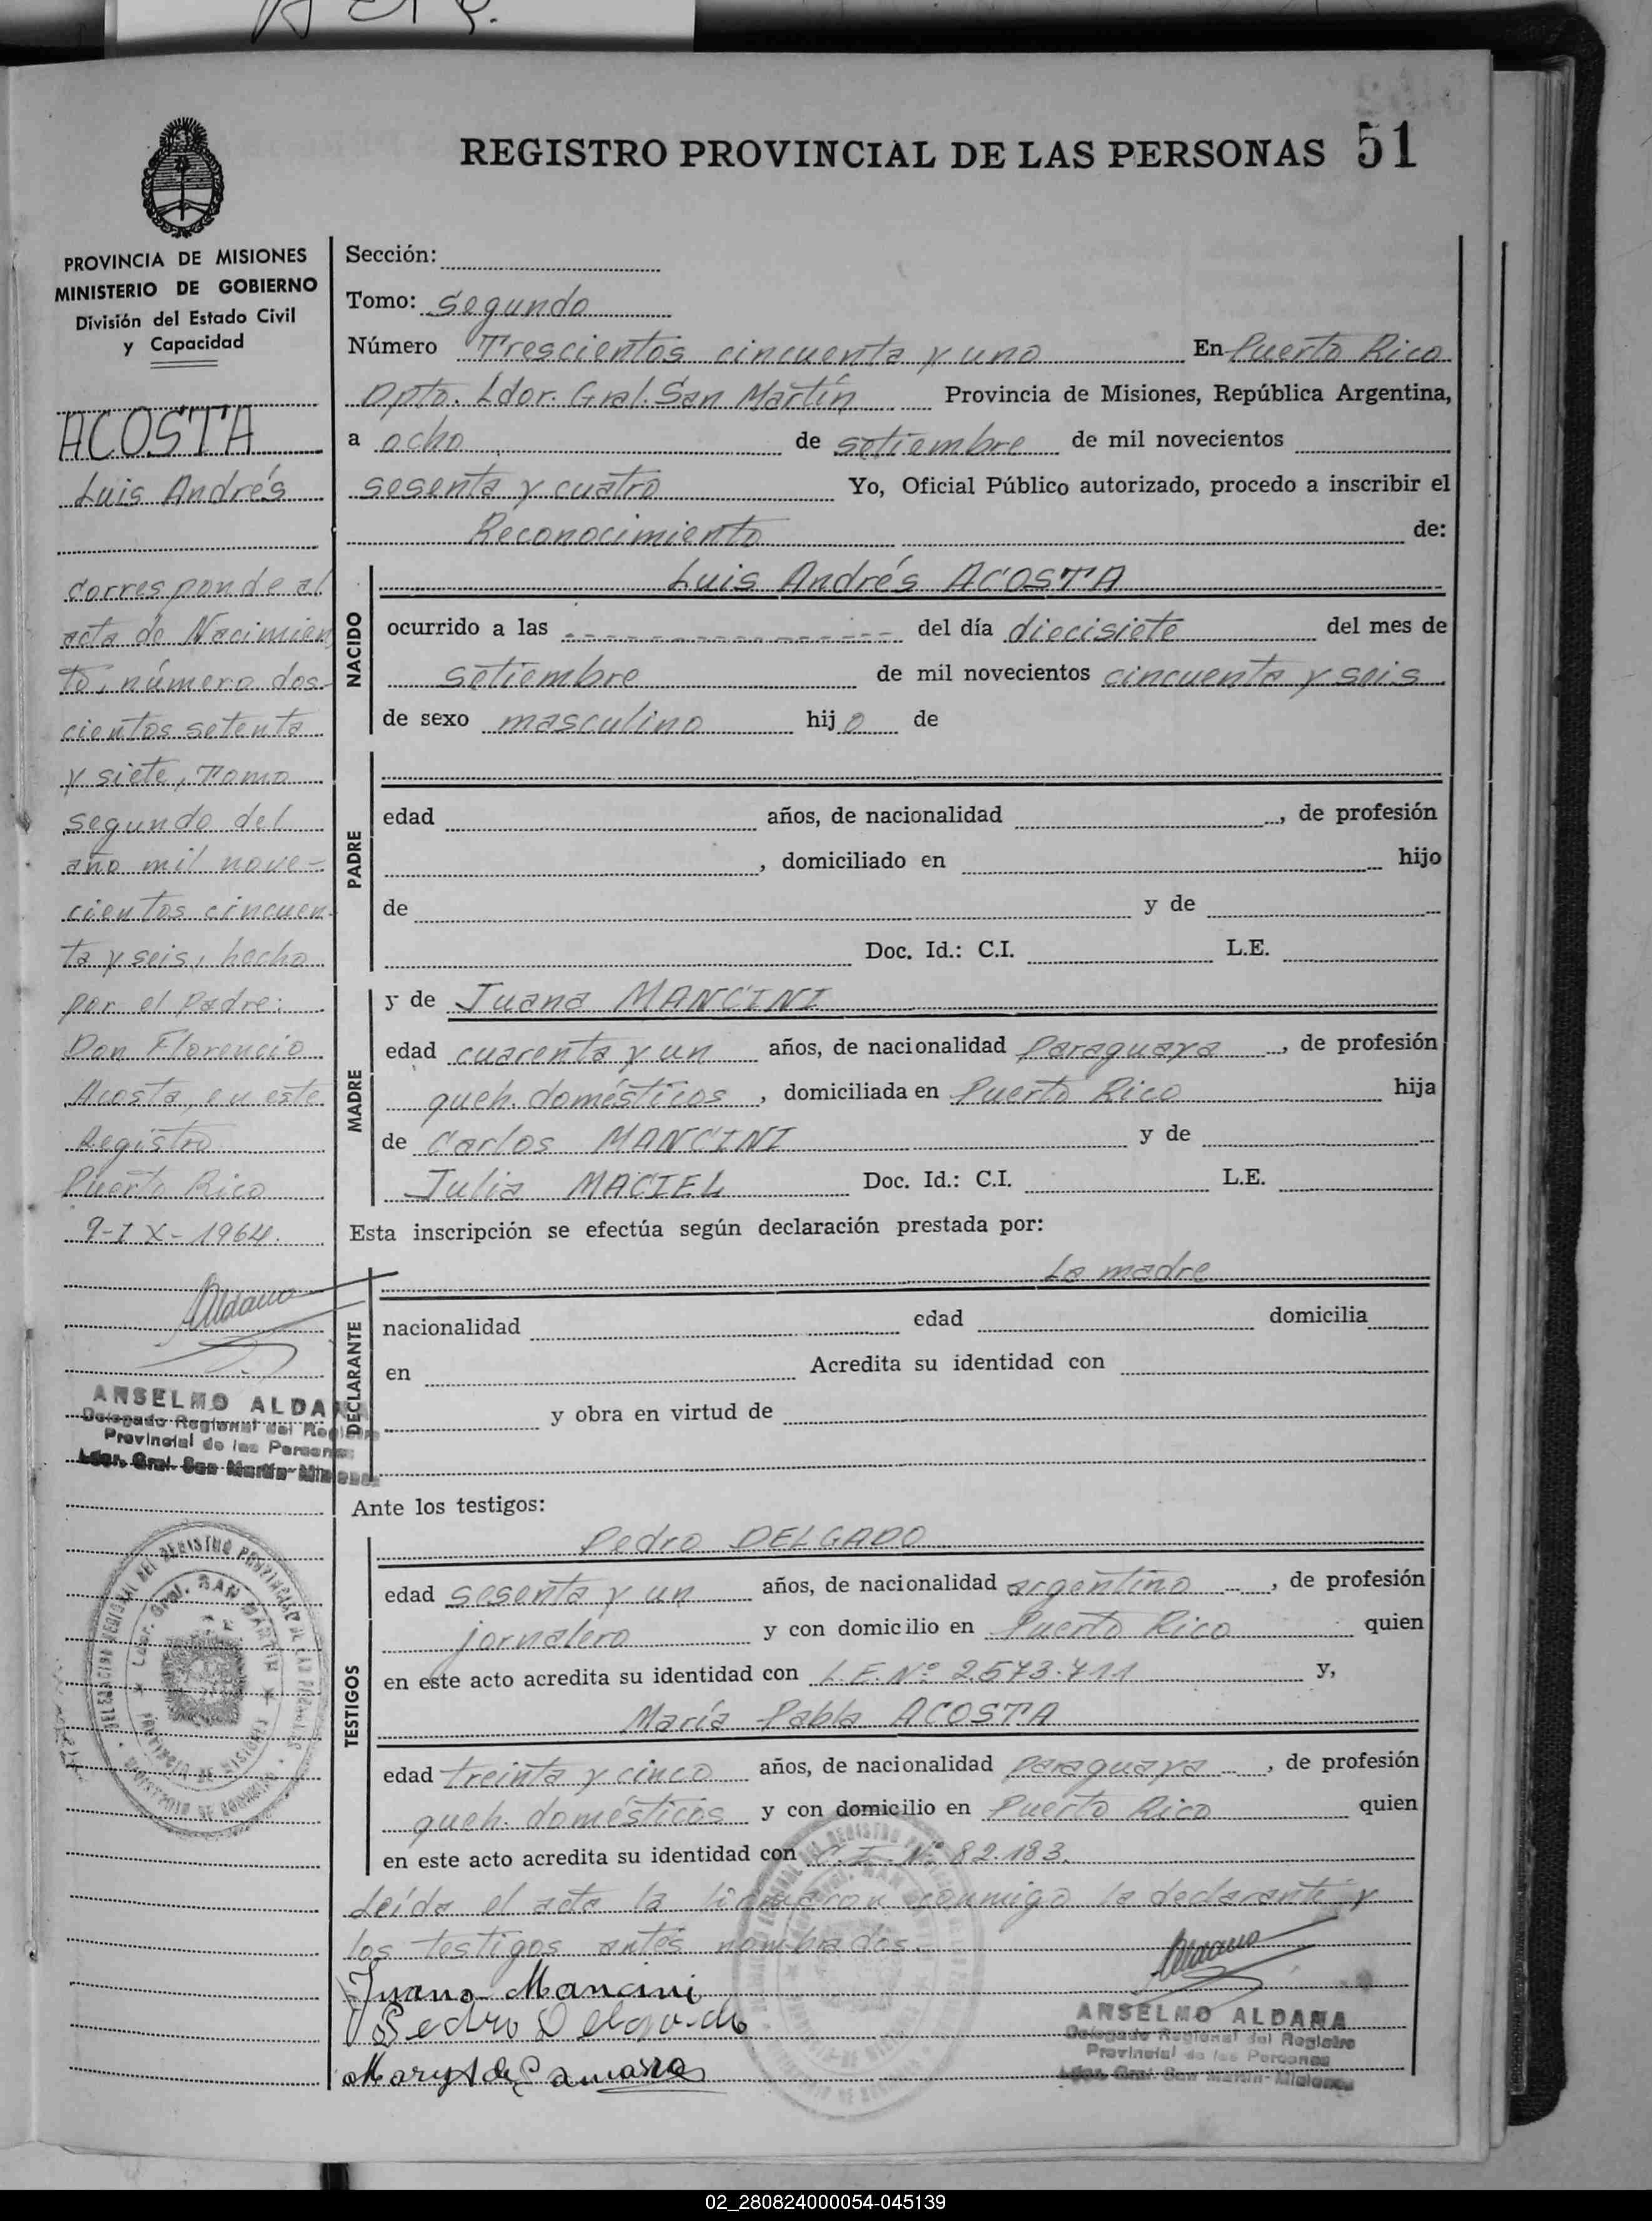 REGISTRO PROVINCIAL DE LAS PERSONAS 51
PROVINCIA DE MISIONES
MINISTERIO DE GOBIERNO
División del Estado Civil
y Capacidad
ACOSTA
Luis Andrés
corresponde al
acta de Nacimien
to, número dos-
cientos setenta
y siete, Tomo
segundo del
año mil nove-
cientos cincuen-
ta y seis, hecho
por el Padre:
Don Florencio
Acosta, en este
Registro
Puerto Rico
9-IX-1964.
Aldana
ANSELMO ALDANA
Delegado Regional del Registro
Provincial de las Personas
Ldor. Gral. San Martín-Misiones
DELEGACION REGIONAL DEL REGISTRO PROVINCIAL DE LAS PERSONAS
Ldor. Gral. SAN MARTIN
PROVINCIA DE MISIONES
MINISTERIO DE GOBIERNO
Sección:
Tomo: segundo
Número Trescientos cincuenta y uno En Puerto Rico
Dpto. Ldor. Gral. San Martín Provincia de Misiones, República Argentina,
a ocho de setiembre de mil novecientos
sesenta y cuatro Yo, Oficial Público autorizado, procedo a inscribir el
Reconocimiento de:
NACIDO
Luis Andrés ACOSTA
ocurrido a las ---------------- del día diecisiete del mes de
setiembre de mil novecientos cincuenta y seis
de sexo masculino hijo de
PADRE
edad años, de nacionalidad , de profesión
, domiciliado en hijo
de y de
Doc. Id.: C.I. L.E.
MADRE
y de Juana MANCINI
edad cuarenta y un años, de nacionalidad Paraguaya , de profesión
queh. domésticos , domiciliada en Puerto Rico hija
de Carlos MANCINI y de
Julia MACIEL Doc. Id.: C.I. L.E.
Esta inscripción se efectúa según declaración prestada por:
DECLARANTE
La madre
nacionalidad edad domicilia
en Acredita su identidad con
y obra en virtud de
Ante los testigos:
TESTIGOS
Pedro DELGADO
edad sesenta y un años, de nacionalidad argentino , de profesión
jornalero y con domicilio en Puerto Rico quien
en este acto acredita su identidad con L.E. Nº 2.573.711 y,
María Pabla ACOSTA
edad treinta y cinco años, de nacionalidad paraguaya , de profesión
queh. domésticos y con domicilio en Puerto Rico quien
en este acto acredita su identidad con C.I. Nº 82.183.
Leída el acta la firmaron conmigo la declarante y
los testigos antes nombrados.
Juana Mancini
Pedro Delgado
Aldana
ANSELMO ALDANA
Delegado Regional del Registro
Provincial de las Personas
Ldor. Gral. San Martín-Misiones
02_280824000054-045139